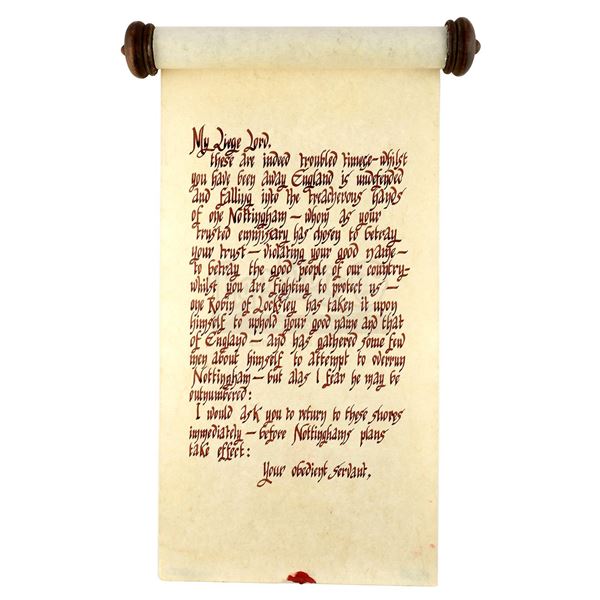 My Liege Lord,
these are indeed troubled times - whilst
you have been away England is undefended
and falling into the treacherous hands
of one Nottingham - whom as your
trusted emmisary has chosen to betray
your trust - violating your good name -
to betray the good people of our country -
whilst you are fighting to protect us -
one Robin of Locksley has taken it upon
himself to uphold your good name and that
of England - and has gathered some few
men about himself to attempt to overrun
Nottingham - but alas I fear he may be
outnumbered:
I would ask you to return to these shores
immediately - before Nottinghams plans
take effect:
Your obedient servant,